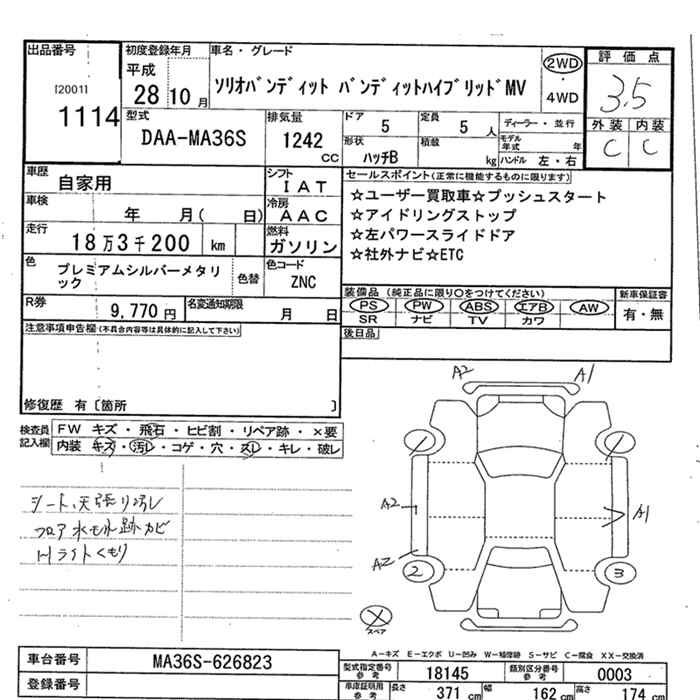 出品番号
[2001]
1114
初度登録年月
平成
28 10 月
車名・グレード
ソリオバンディット バンディットハイブリッドMV
2WD
4WD
評価点
3.5
外装 内装
C C
型式
DAA-MA36S
排気量
1242
CC
ドア
5
定員
5 人
形状
ハッチB
積載
kg
ディーラー・並行
モデル年式
年
ハンドル 左・右
車歴
自家用
シフト
IAT
車検
年 月( 日)
冷房
AAC
走行
18万3千200 km
燃料
ガソリン
色
プレミアムシルバーメタリ
ック
色替
色コード
ZNC
R券
9,770 円
名変通知期限
月 日
セールスポイント(正常に機能するものに限ります)
☆ユーザー買取車☆プッシュスタート
☆アイドリングストップ
☆左パワースライドドア
☆社外ナビ☆ETC
装備品 (純正品に限り○をつけてください)
PS PW ABS エアB AW
SR ナビ TV カワ
新車保証書
有・無
後日品
注意事項申告欄(不具合内容等は具体的に記入して下さい)
修復歴 有 〔箇所 〕
検査員
記入欄
FW キズ・飛石・ヒビ割・リペア跡・×要
内装 キズ・汚レ・コゲ・穴・スレ・キレ・破レ
シート、天張り汚レ
フロア 水モレ跡カビ
Hライトくもり
A2 A1
A2 A1
A2
2 3
スペア
A-キズ E-エクボ U-凹み W-補修跡 S-サビ C-腐食 XX-交換済
車台番号
MA36S-626823
登録番号
型式指定番号
参考
18145
類別区分番号
参考
0003
車庫証明用
参考
長さ
371 cm
幅
162 cm
高さ
174 cm